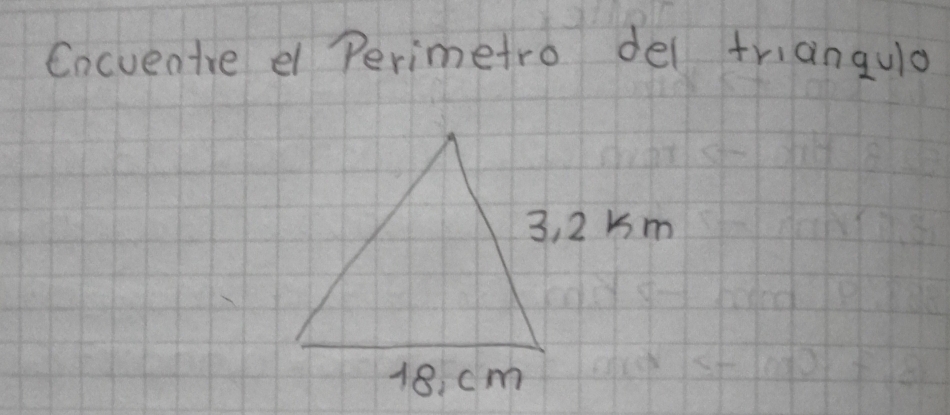 Encuentre el Perimetro del triangulo
3,2 Km
18, cm